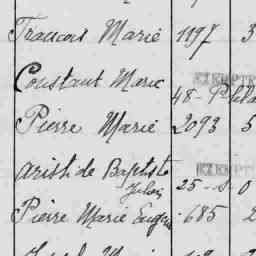 Francois Marie 1197 3
Constant Marie EXEMPTE
48-
Pierre Marie 2093 5
Aristide Baptiste EXEMPTE
Jules 25 - 0
Pierre Marie Eugène 685 2